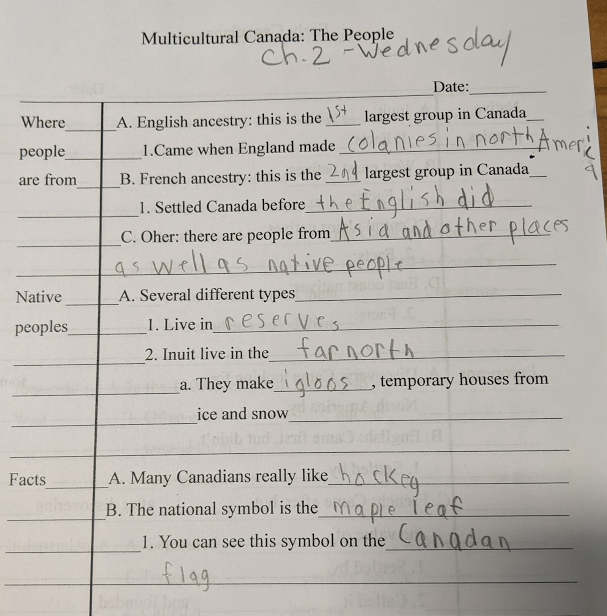 Multicultural Canada: The People
Ch. 2 - Wednesday
Date:
Where A. English ancestry: this is the 1st largest group in Canada
people 1.Came when England made colanies in north America
are from B. French ancestry: this is the 2nd largest group in Canada
1. Settled Canada before the English did
C. Oher: there are people from Asia and other places
as well as native people
Native A. Several different types
peoples 1. Live in reserves
2. Inuit live in the far north
a. They make igloos, temporary houses from
ice and snow
Facts A. Many Canadians really like hockey
B. The national symbol is the maple leaf
1. You can see this symbol on the Canadan
flag